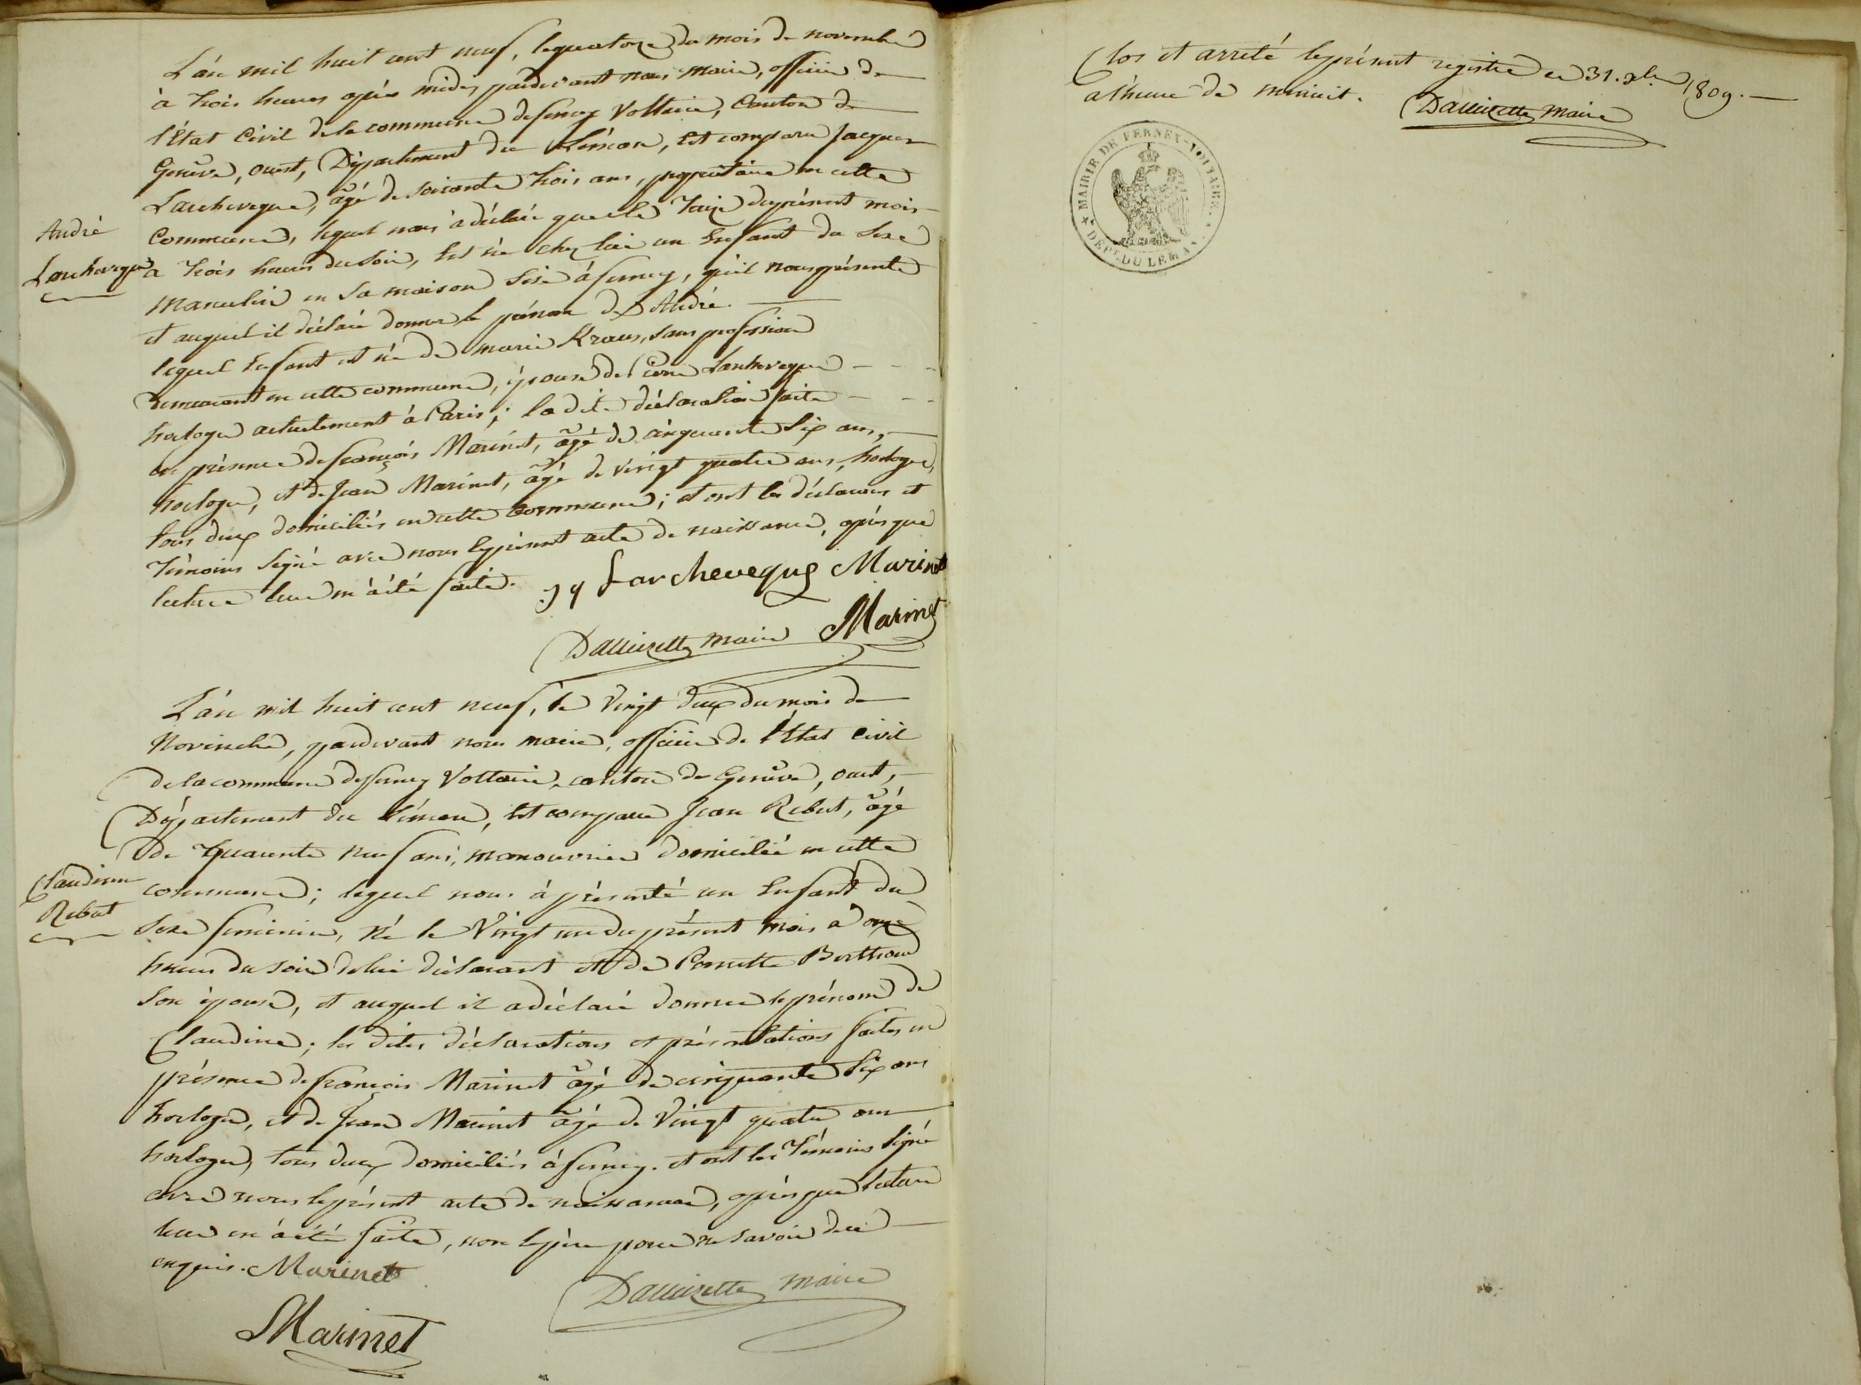 L'an mil huit cent neuf, le quatorze du mois de novembre
à trois heures après midy, pardevant nous maire, officier de
l'Etat Civil de la commune de ferney Voltaire, Canton de
Genève, ouest, Département du Léman, Est comparu Jacques
Larcheveque, âgé de soixante trois ans, propriétaire en cette
Commune, lequel nous à déclaré que le treize du présent mois
André
Larcheveque
à trois heures du soir, Est né chez lui un Enfant du Sexe
Masculin en sa maison sise à ferney, qu'il nous présente
et auquel il déclare donner le prénom de André.
lequel Enfant est né de marie Kraus, sans profession
demeurant en cette commune, épouse de Pierre Larcheveque
horloger actuellement à Paris; la dite déclaration faite
en présence de françois Marinet, âgé de cinquante Six ans,
horloger, et de Jean Marinet, âgé de vingt quatre ans, horloger,
tous deux domiciliés en cette commune; et ont les déclarant et
témoins signé avec nous le présent acte de naissance, après que
lecture leur en à été faite.
Larcheveque Marinet
Dallizette maire Marinet
L'an mil huit cent neuf, le vingt deux du mois de
Novembre, pardevant nous maire, officier de l'Etat Civil
de la commune de ferney Voltaire, canton de Genève, ouest,
Département du Léman, Est comparu Jean Rebut, âgé
de quarante neuf ans, manouvrier domicilié en cette
Claudine
Rebut
commune; lequel nous à présenté un Enfant du
Sexe feminin, né le Vingt un du présent mois à onze
heures du soir de lui déclarant et de Pernette Berthoud
Son épouse, et auquel il a déclaré donner le prénom de
Claudine; les dites déclarations et présentations faites en
présence de françois Marinet âgé de cinquante Six ans
horloger, et de Jean Marinet âgé de Vingt quatre ans
horloger, tous deux domiciliés à ferney. et ont les témoins signé
avec nous le présent acte de naissance, après que lecture
leur en à été faite, non le père pour ne savoir de ce
enquis. Marinet
Dallizette maire
Marinet
Clos et arrêté le présent registre ce 31. Xbre 1809.
à l'heure de minuit. Dallizette maire
MAIRIE DE FERNEY-VOLTAIRE.
DEPT. DU LEMAN.